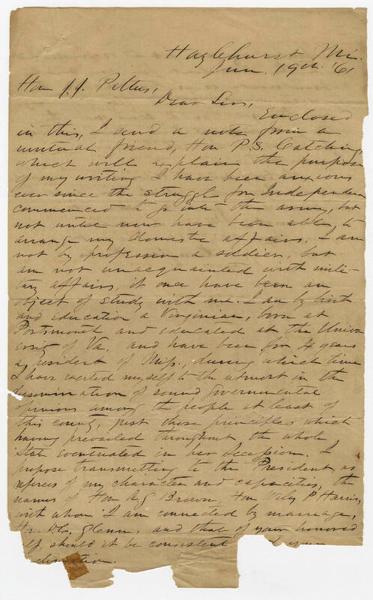 Hazlehurst Mi.
Jun. 19th. '61
Hon J. J. Pettus,
Dear Sir,
Enclosed
in this, I send a note from a
mutual friend, Hon P. S. Catching,
which will explain the purpose
of my writing. I have been anxious
ever since the struggle for Independence
commenced to go into the army, but
not until now have been able to
arrange my domestic affairs. I am
not by profession a soldier, but
am not unacquainted with mili-
tary affairs, it once have been an
object of study with me. I am by birth
and education a Virginian, born at
Portsmouth and educated at the Univer
sity of Va. and have been for 4 years
a resident of Miss., during which time
I have exerted myself to the utmost in the
dissemination of sound governmental
opinions among the people at least of
this county, just those principles which
having prevailed throughout the whole
State eventuated in her secession. I
propose transmitting to the President as
referees of my character and capacities, the
names of Hon A. G. Brown, Hon Wiley P Harris,
with whom I am connected by marriage,
Glenn, and that of your honored
self should it be consistent